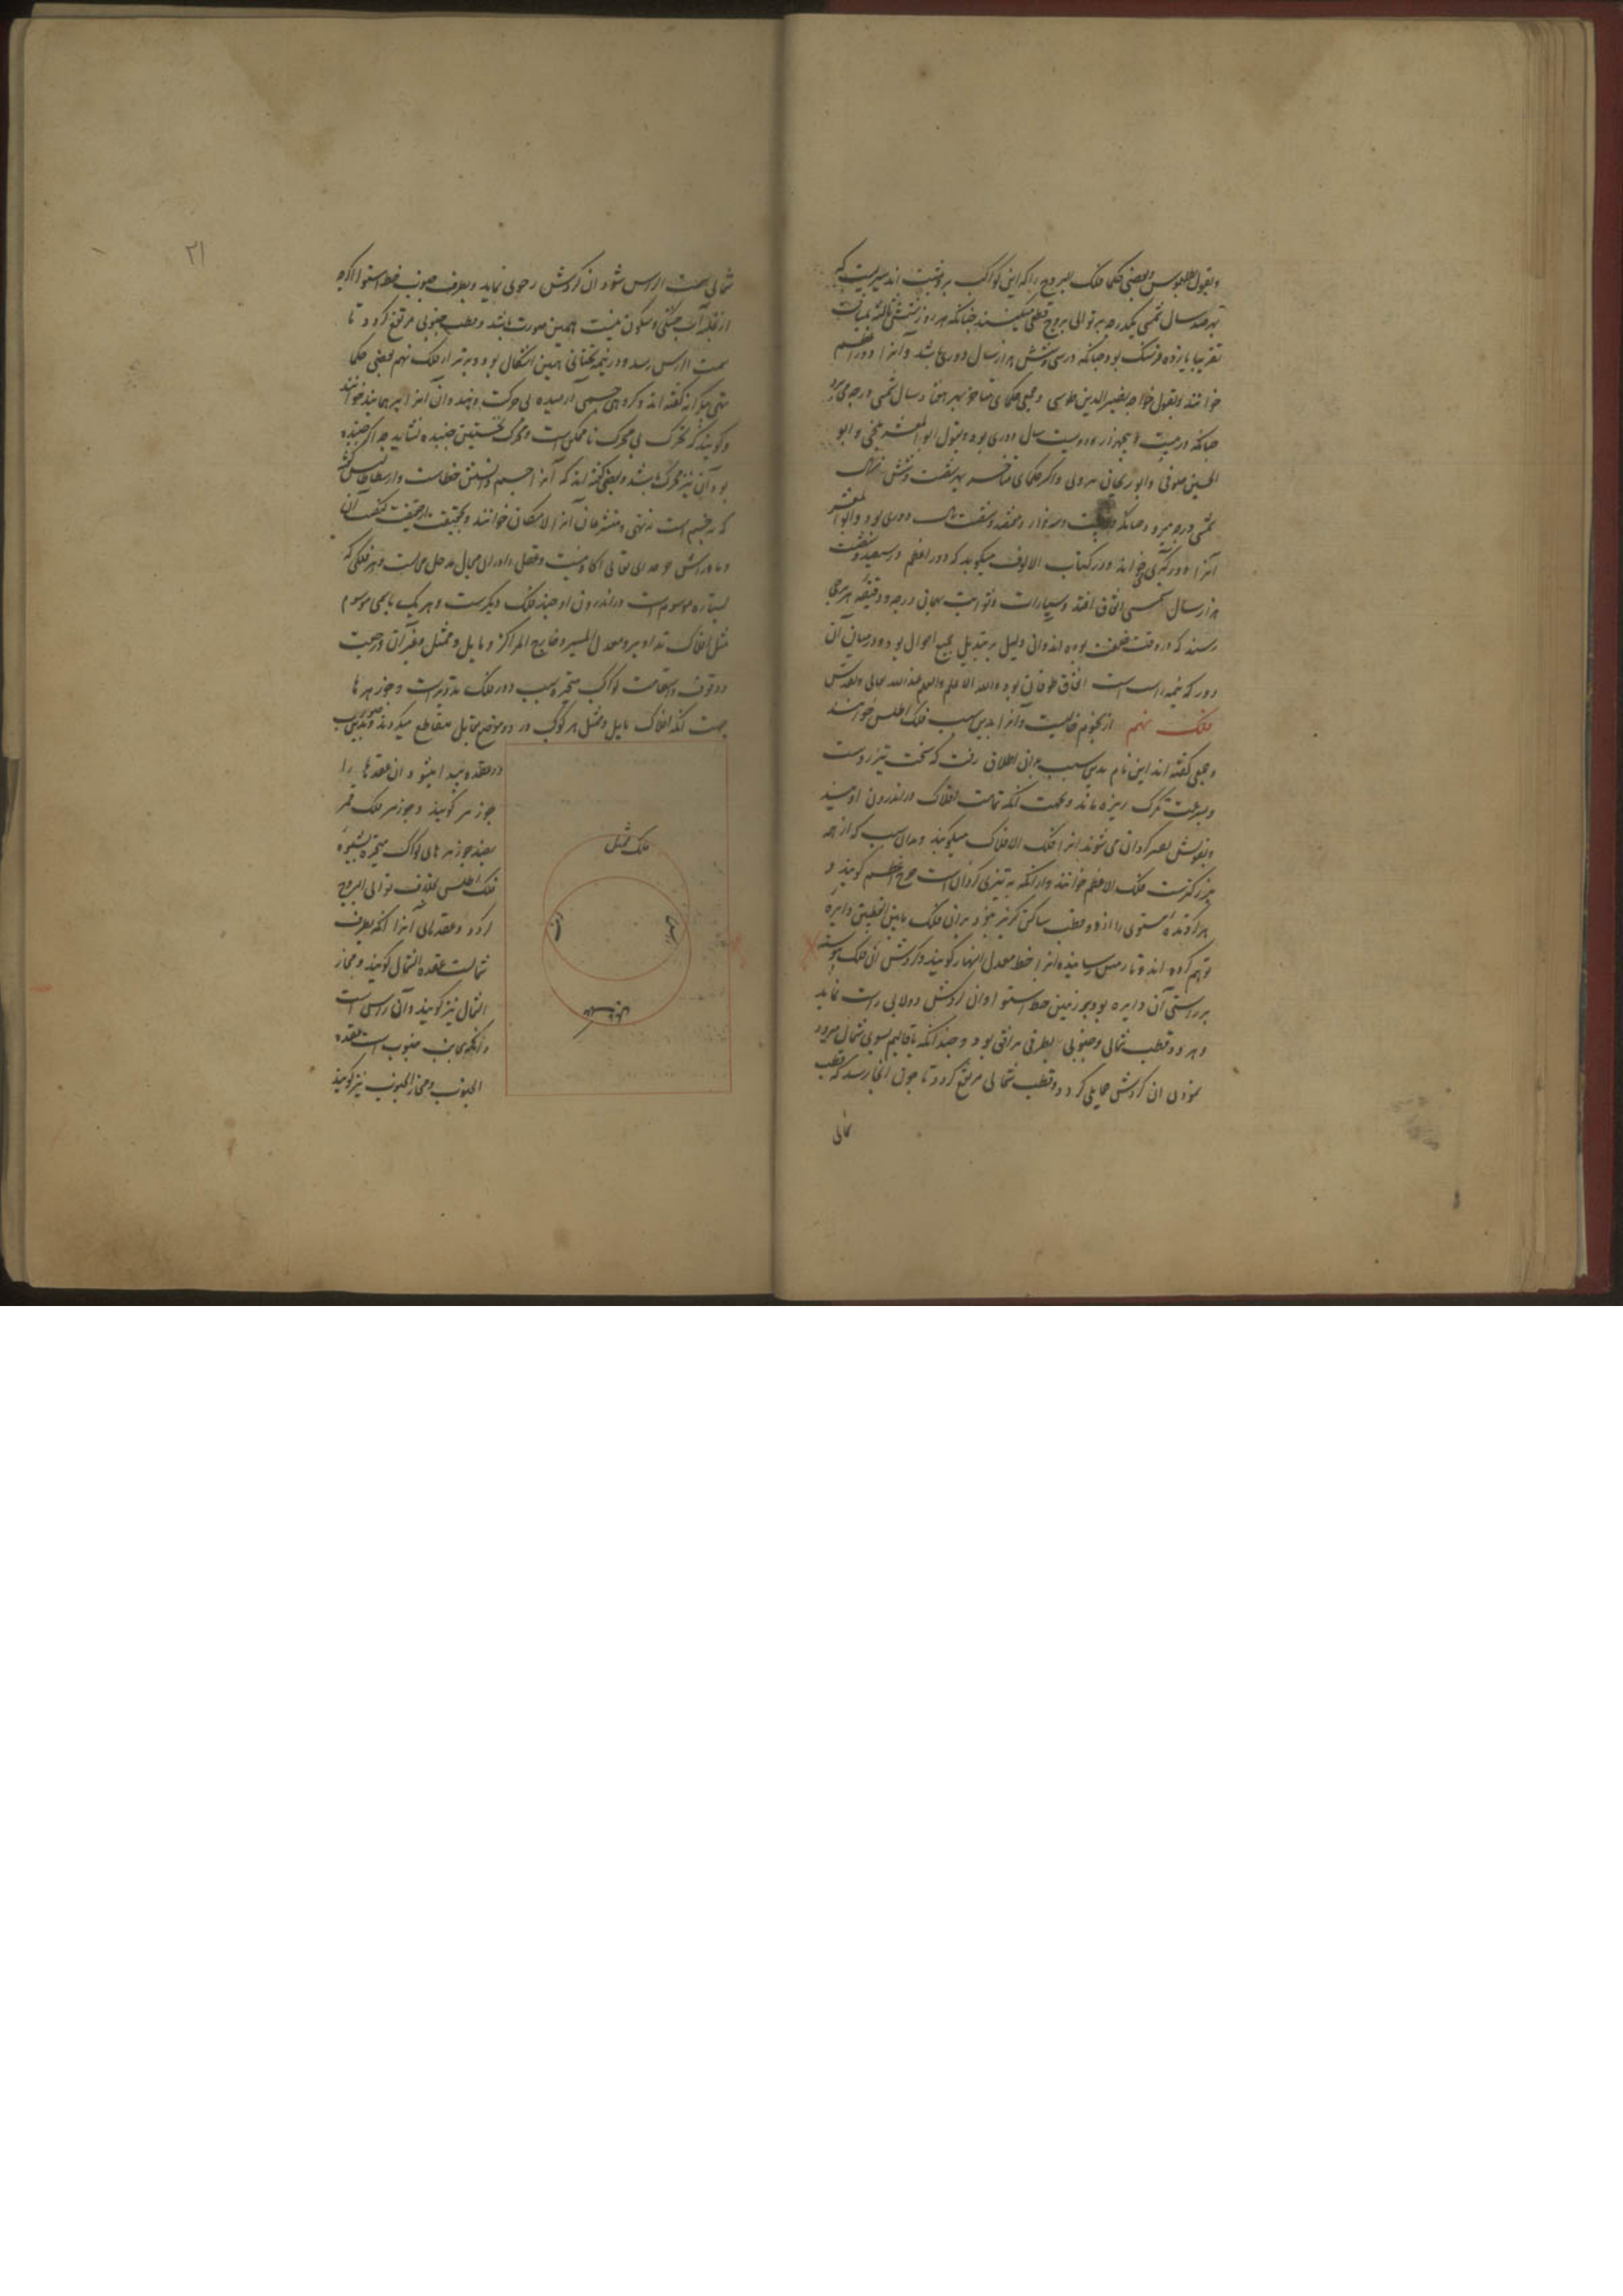 وبقول بطلمیوس وبعضی حکما فلک البروج را که این کواکب برو مثبت اند سیریست که
بهر صد سال شمسی یکدرجه بر توالی بروج قطع میکند چنانکه هر روز شش ثالثه
تقریبا یازده فرسنک بود چنانکه در سی وشش هزار سال دوری باشد وآنرا دور اعظم
خوانند وبقول خواجه نصیر الدین طوسی وجمعی حکمای متاخر بهر هفتاد سال شمسی درجه می رود
چنانکه در بیست وپنجهزار ودویست سال دوری بود وبقول ابو المعشر بلخی وابو
الحسین صوفی وابو ریحان بیرونی واکثر حکمای متاخر بهر شصت وشش سال
شمسی درجه میرود چنانکه در بیست وسه هزار وهفتصد وشصت سال دوری بود وابو المعشر
آنرا دور کبری خواند ودر کتاب الالوف میکوید که دور اعظم در سیصد وشصت
هزار سال شمسی اتفاق افتد وسیارات وثوابت بهمان درجه ودقیقه هر برجی
رسند که در وقت خلقت بوده اند وان دلیل بر تبدیل جمیع احوال بود ودر میان آن
دور که نیمه راست است اتفاق طوفان بود والله اعلم والعلم عند الله تعالی وتقدس
فلک نهم از نجوم خالیست وآنرا بدین سبب فلک اطلس خوانند
وجمعی کفته اند این نام بدین سبب بران اطلاق رفت که سخت تیز روست
وبسرعت تکرک ریزه ماند وبجهت آنکه تمامت افلاک در اندرون اویند
وبقوتش بقسر کردان می شوند آنرا فلک الافلاک میکویند وبدان سبب که از همه
بزرکترست فلک الاعظم خوانند واز آنکه به تیزی کردان است چرخ اعظم کویند و
هر کرنده مستوی را از دو قطب ساکن کزیر نبود بران فلک مابین القطبین دایره
توهم کرده اند وتا زمین رسانیده آنرا خط معدل النهار کویند وکردش آن فلک پیوسته
بر راستی آن دایره بود وبر زمین خط استوا وان کردش دولابی راست نماید
وهر دو قطب شمالی وجنوبی بطرفی برافق بود وچندانکه باقالیم بسوی شمال میرود
نمودن آن کردش حمایلی کردد وقطب شمالی مرتفع کردد تا چون آنجا رسد که قطب
شمالی
٢١
شمالی بسمت الراس شود آن کردش رحوی نماید وبطرف جنوب خط استوا اکرچه
از غلبه آب خشکی ومسکون نیست همین صورت باشد وقطب جنوبی مرتفع کردد تا
سمت الراس رسد ودر نیمه تحتانی همین اشکال بود وبرتر از فلک نهم بعضی حکما
متحرکانه کفته اند وکروهی جسمی آرمیده بی حرکت نهند وآن آنرا خوانند
وکویند که تحرک بی محرک ناممکن است ومحرک نخستین جنبنده نشاید چه اکر جنبنده
بود آن نیز محرک باشد وبعضی کفته اند که آنرا جسم دانستن خطاست وارسطاطالیس کفت
که نه جسم است نه تهی ومتشرعان آنرا لامکان خوانند وبحقیقت از حقیقت کیفیت آن
وماورائش جز خدای تعالی آکاه نیست وعقل را در آن مجال مدخل محالست وهر فلکی که
بستاره موسوم است در اندرون او چند فلک دیکرست وهر یک باسمی موسوم
مثل افلاک تداویر ومعدل المسیر وخارج المراکز ومایل وممثل وغیر آن ورجعت
ووقوف واستقامت کواکب متحیره بسبب دور فلک تدویرست وجوزهرها
بجهت آنکه افلاک مایل وممثل هر کوکب در دو موضع مقابل متقاطع میکردند وبدین سبب
دو عقده پیدا میشود وان عقدها را
جوزهر کویند وجوزهر فلک قمر
بضد جوزهر های کواکب متحیره بشیوه
فلک اطلس بخلاف توالی البروج
کردد وعقدهای آنرا آنکه بطرف
شمالست عقده الشمال کویند ومجاز
الشمال نیز کویند وآن راس است
وآنکه بجانب جنوب است عقده
الجنوب ومجاز الجنوب نیز کویند
فلک ممثل
الراس